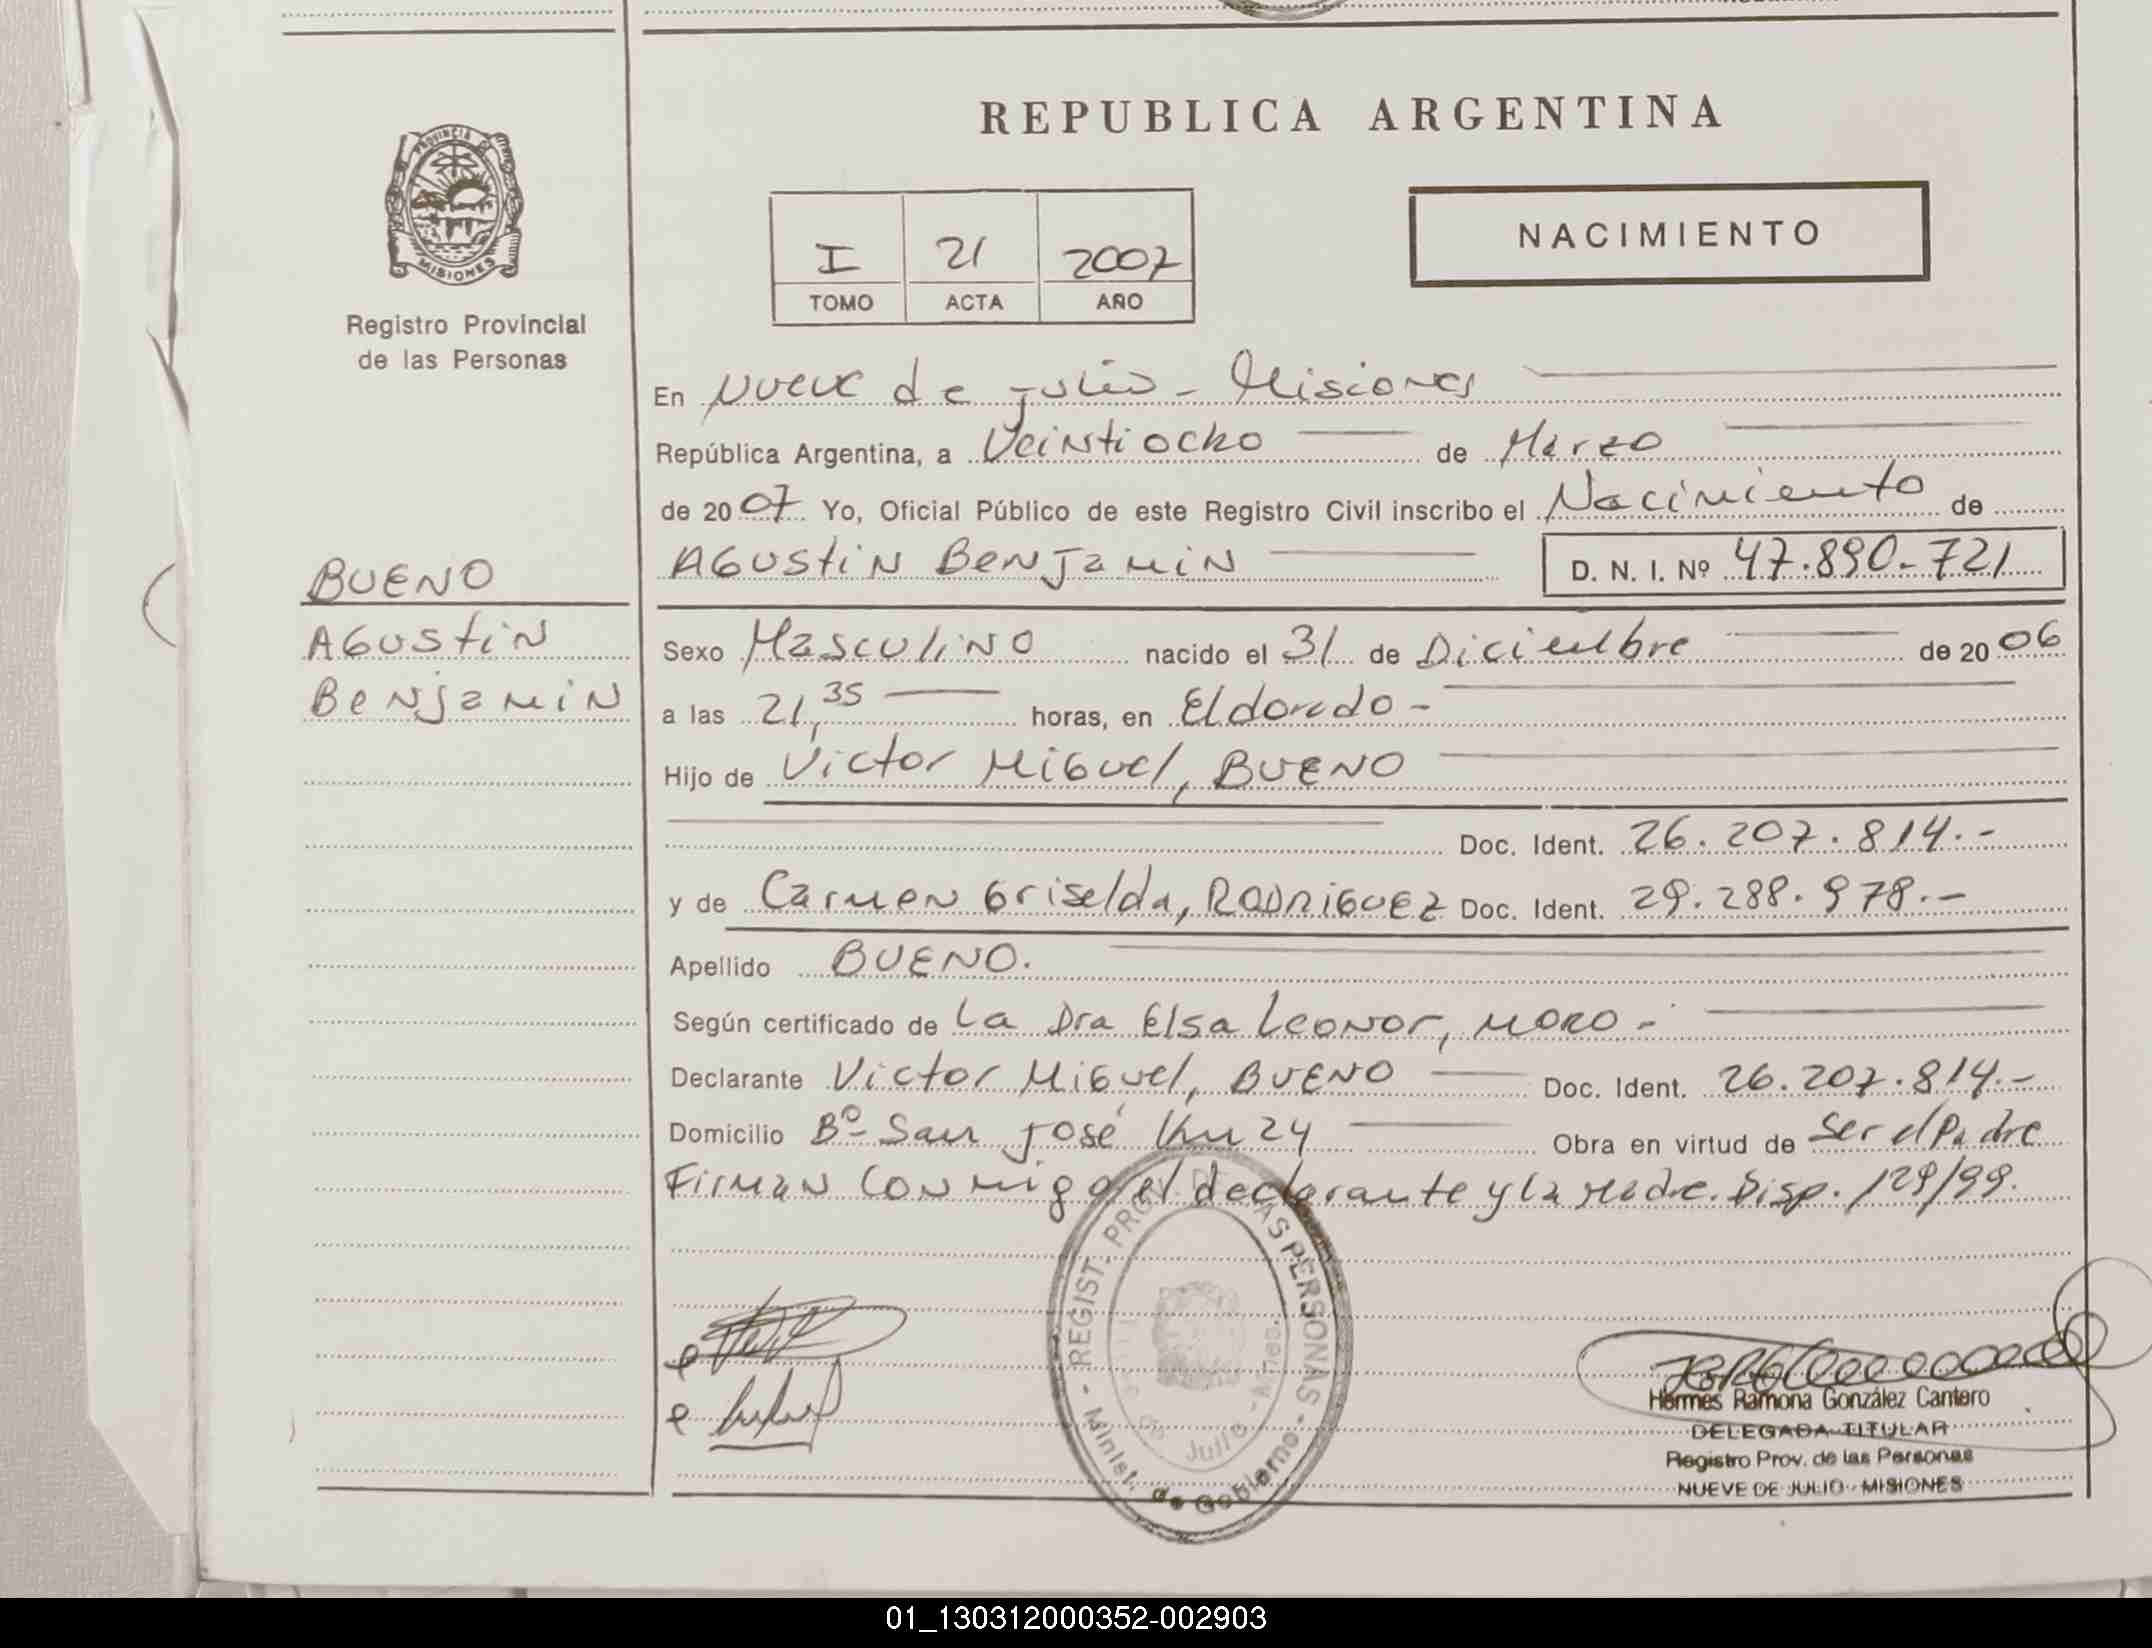 REPUBLICA ARGENTINA
PROVINCIA DE
MISIONES
Registro Provincial
de las Personas
I 21 2007
TOMO ACTA AÑO
NACIMIENTO
En Nueve de Julio - Misiones
República Argentina, a Veintiocho de Marzo
de 2007 Yo, Oficial Público de este Registro Civil inscribo el Nacimiento de
Agustin Benjamin D. N. I. Nº 47.890-721
BUENO
Agustin
Benjamin
Sexo Masculino nacido el 31 de Diciembre de 2006
a las 21,35 horas, en Eldorado -
Hijo de Victor Miguel, BUENO
Doc. Ident. 26.207.814.-
y de Carmen Griselda, RODRIGUEZ Doc. Ident. 29.288.978.-
Apellido BUENO.
Según certificado de La Dra Elsa Leonor, MORO -
Declarante Victor Miguel, BUENO Doc. Ident. 26.207.814.-
Domicilio Bº San José Km 24 Obra en virtud de Ser el Padre
Firman conmigo el declarante y la Madre. Disp. 129/99.
REGIST. PROV. DE LAS PERSONAS
Minist. de Gobierno
de Julio
Hermes Ramona González Cantero
DELEGADA TITULAR
Registro Prov. de las Personas
NUEVE DE JULIO - MISIONES
01_130312000352-002903